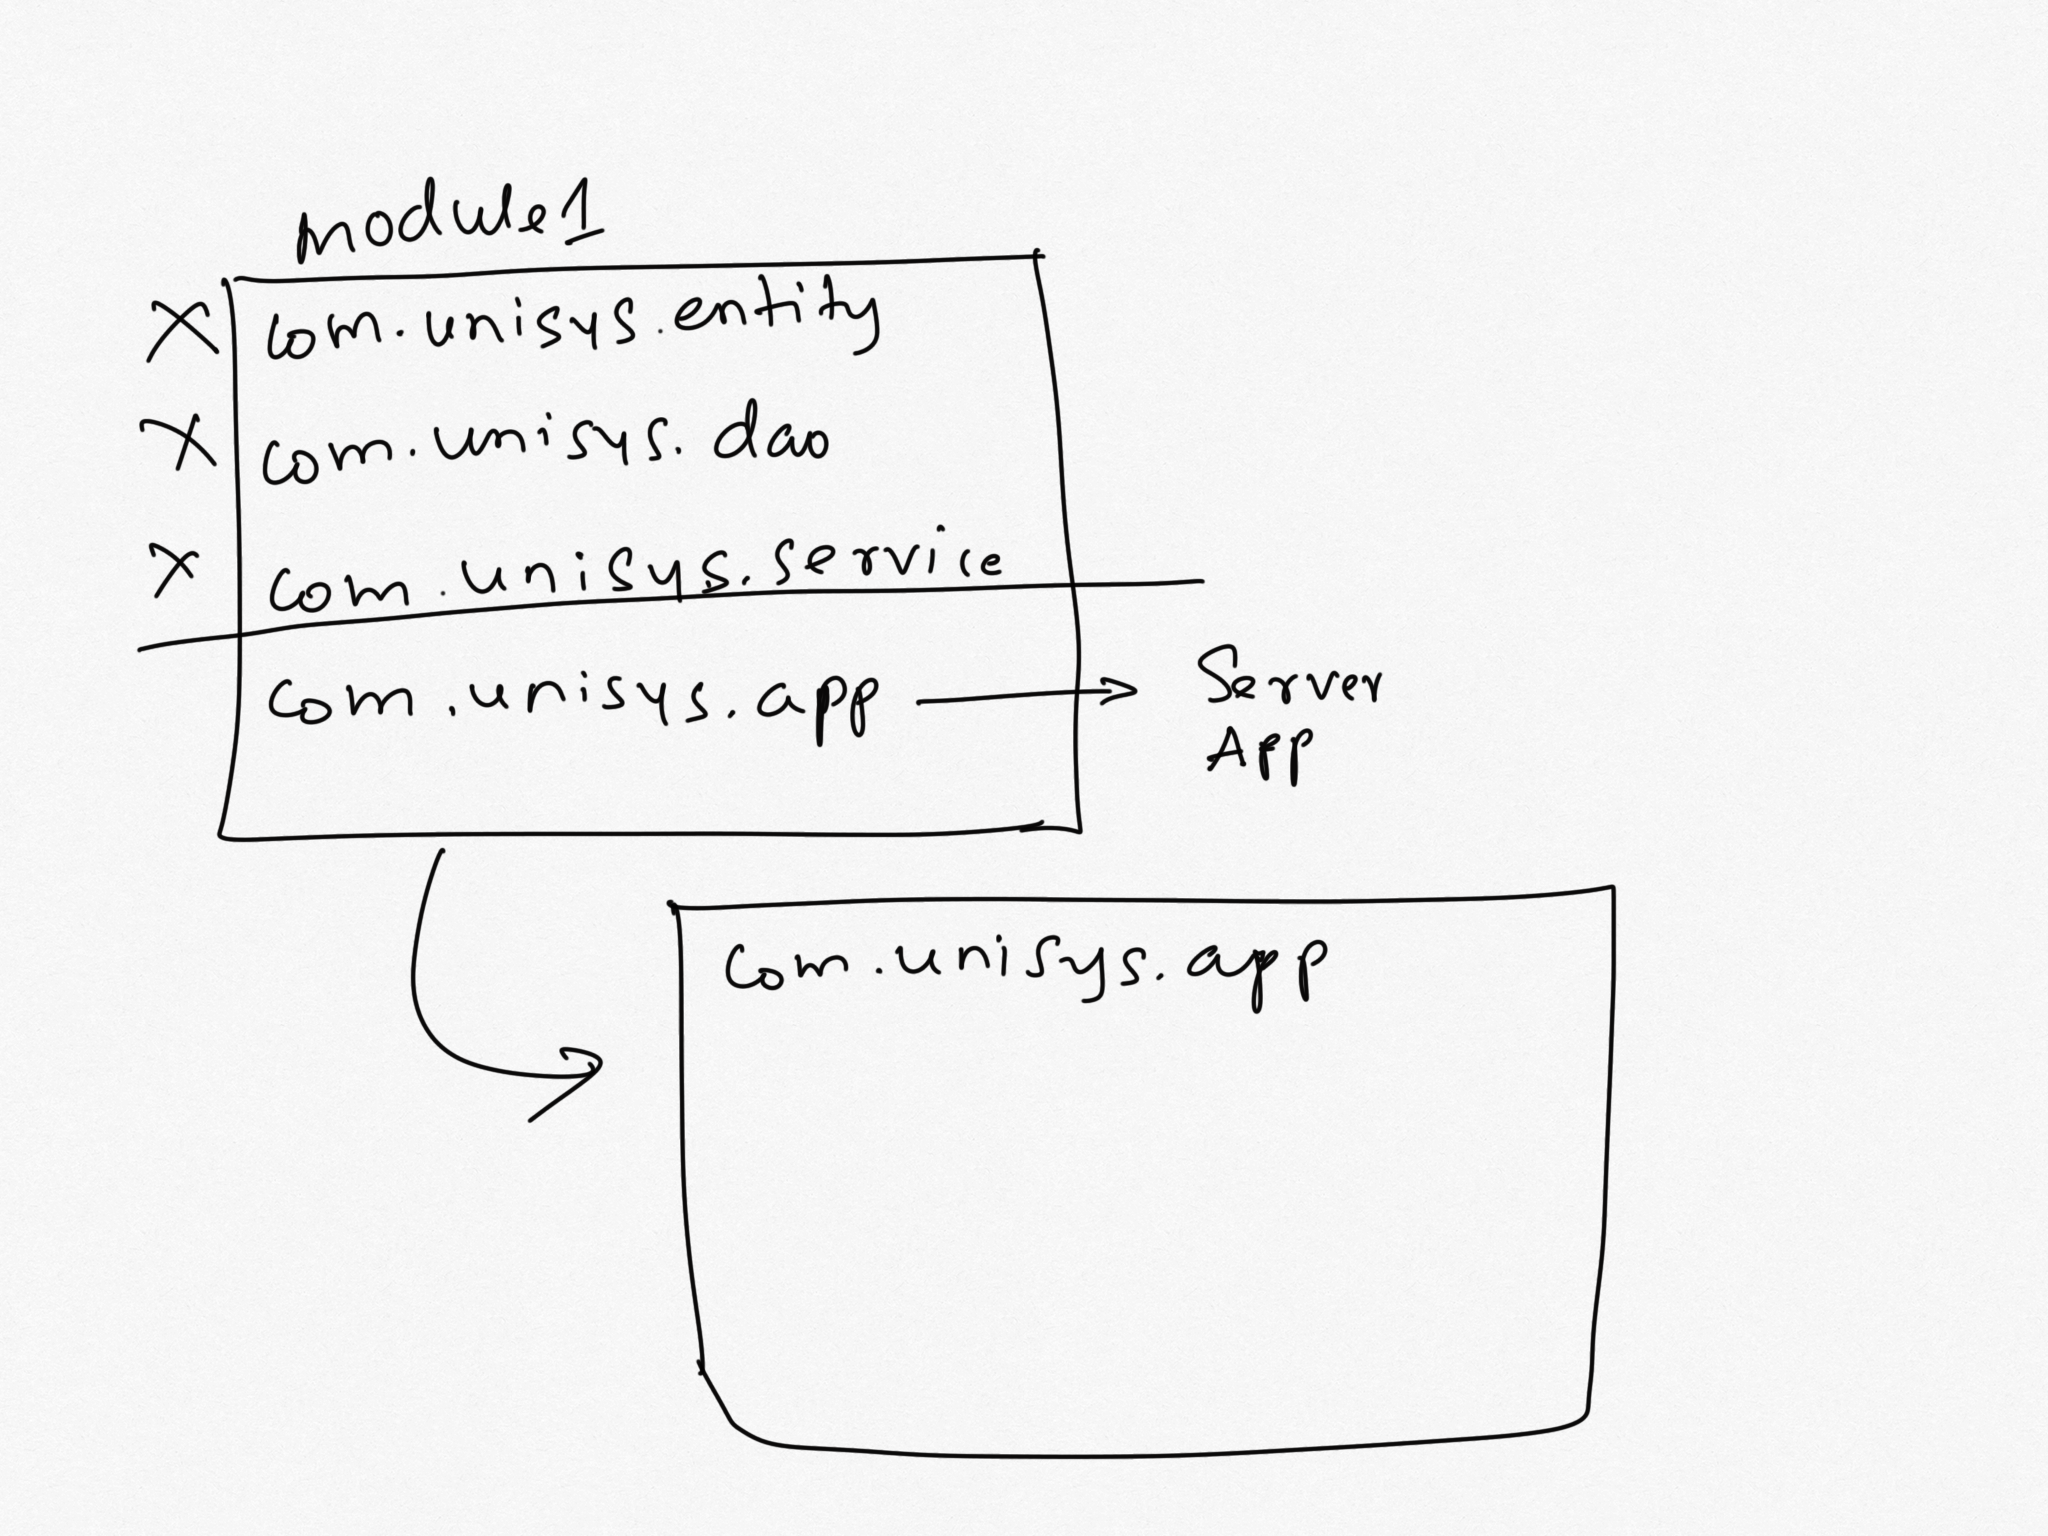 module1
X com.unisys.entity
X com.unisys.dao
X com.unisys.service
com.unisys.app → Server
App
com.unisys.app